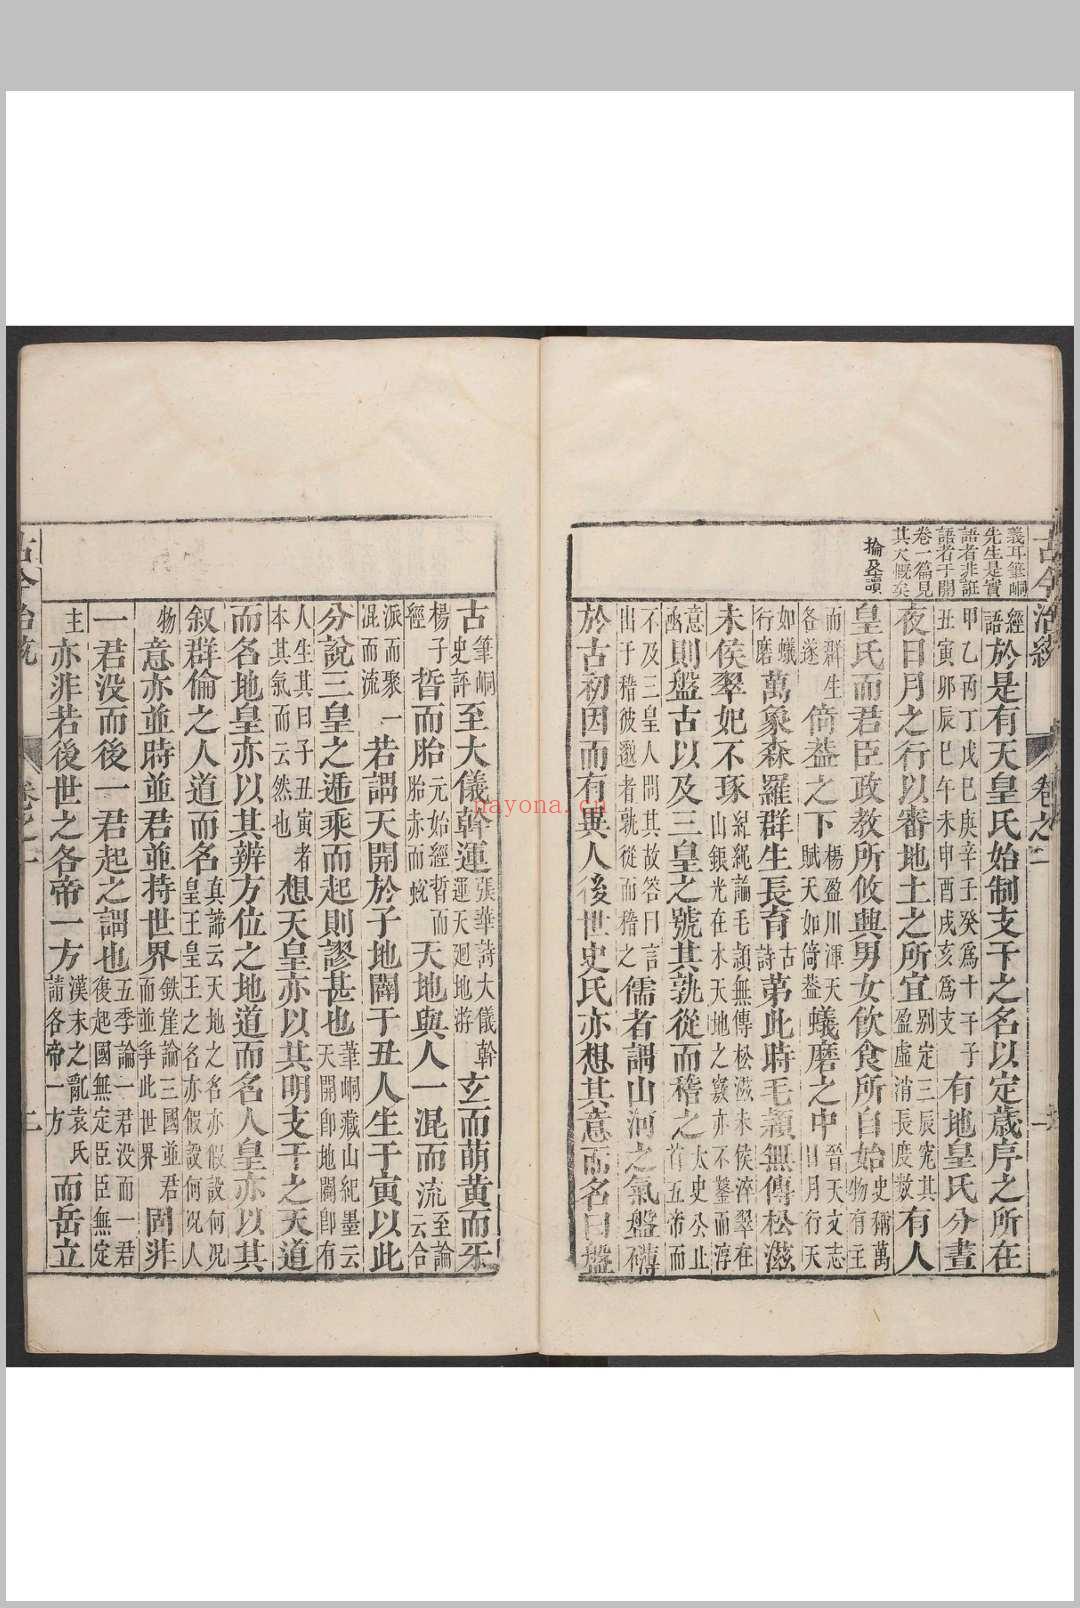 古今治統
卷之二
義耳筆峒
先生是實
語者非誑
語者于開
卷一篇見
其大慨矣
掄及讀
經語於是有天皇氏始制支干之名以定歲序之所在
甲乙丙丁戊巳庚辛壬癸為十干子丑寅卯辰巳午未申酉戌亥為支有地皇氏分晝
夜日月之行以審地土之所宜别定三辰究其盈虛消長度數有人
皇氏而君臣政教所攸興男女飲食所自始史稱萬物有主
而群生各遂倚葢之下楊盈川渾天賦天如倚葢蟻磨之中晉天文志日月行天
如蟻行磨萬象森羅群生長育古詩苐此時毛頴無傳松滋
未侯翠妃不琢紀繩論毛頴無傳松滋未侯滓翠在山鋃光在木天地之竅亦不鑿而淳
意函則盤古以及三皇之號其孰從而稽之太史公止首五帝而
不及三皇人問其故答曰言出于稽彼邈者孰從而稽之儒者謂山河之氣盤礴
於古初因而有異人後世史氏亦想其意而名曰盤
古筆峒史評至大儀幹運張華詩大儀幹運天廻地游玄而萌黄而牙
楊子經晢而胎元始經晢而胎赤而蛻天地與人一混而流至論云合
派而聚混而流一若謂天開於子地闢于丑人生于寅以此
分說三皇之遞乘而起則謬甚也筆峒藏山紀墨云天開卽地闢卽有
人生其曰子丑寅者本其氣而云然也想天皇亦以其明支干之天道
而名地皇亦以其辨方位之地道而名人皇亦以其
叙群倫之人道而名真諦云天地之名亦假設何况皇王皇王之名亦假設何况人
物意亦並時並君並持世界鉄崖論三國並君而並爭此世界閒非
一君没而後一君起之謂也五季論一君没而一君復起國無定臣臣無定
主亦非若後世之各帝一方漢末之亂袁氏請各帝一方而岳立
古今治統
卷之二
二
nayona.cn